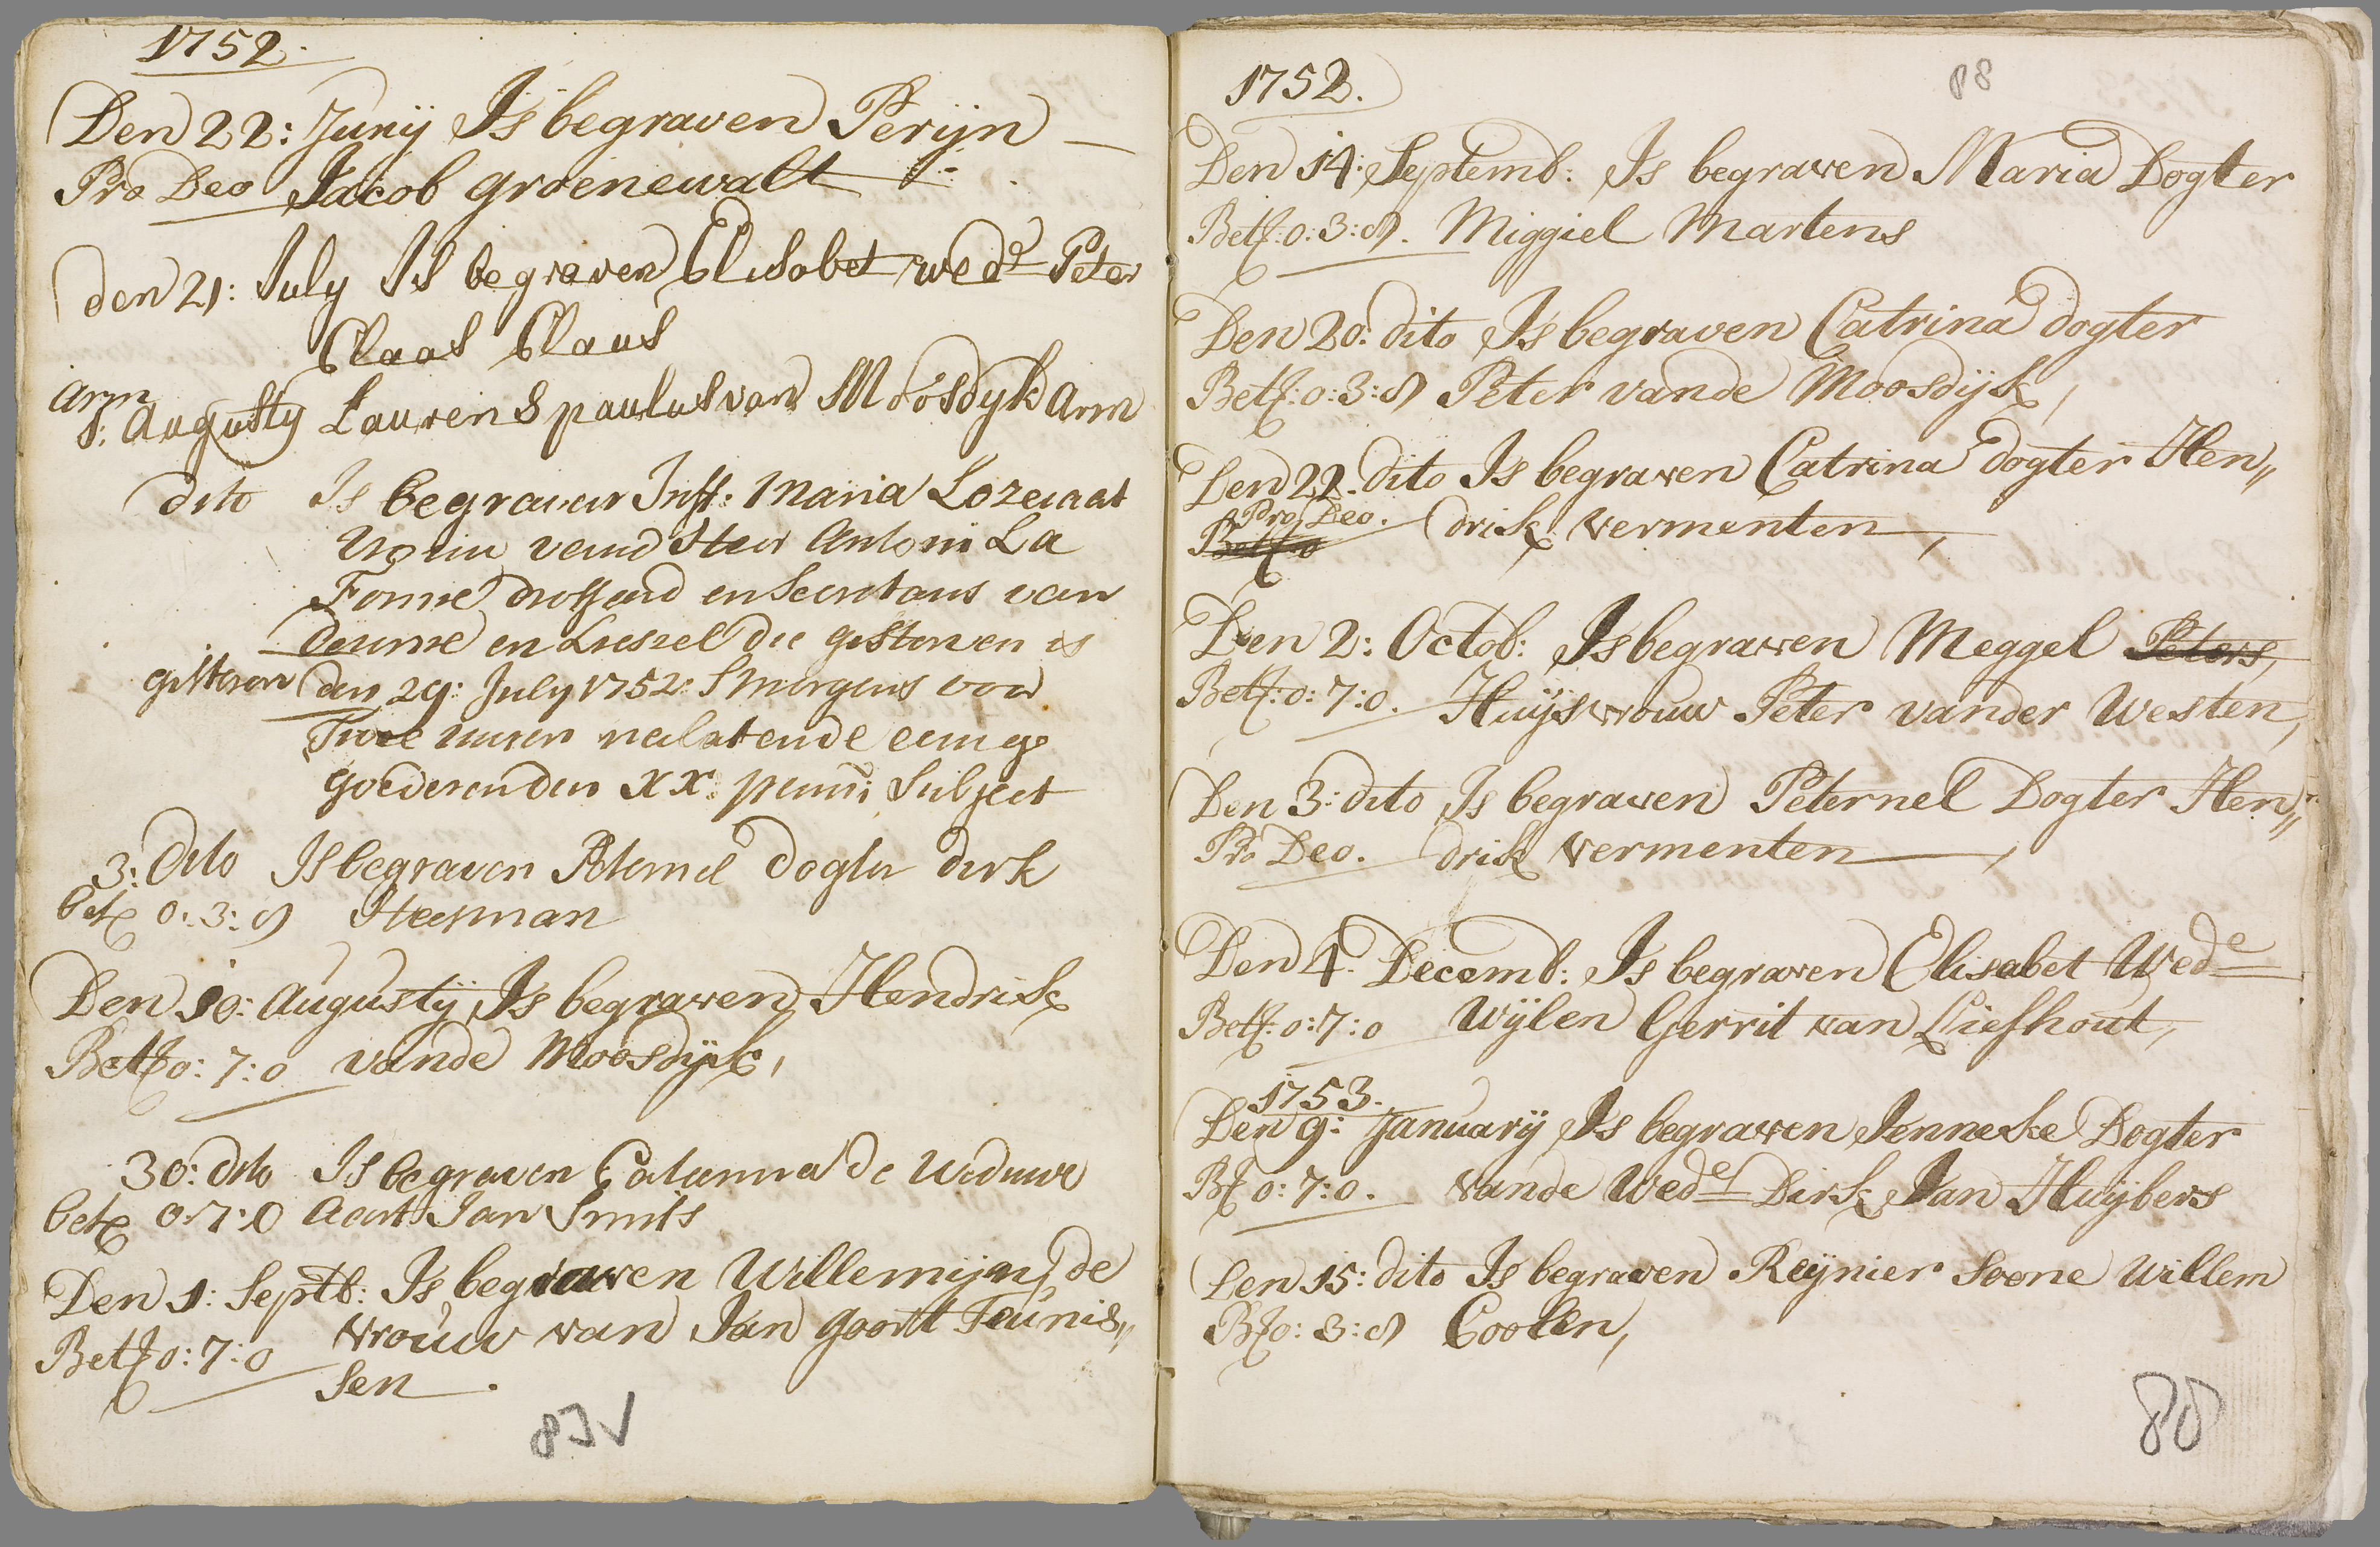 1752.
Den 22: Junij Is begraven Perijn
Pro Deo Jacob groenewalt
den 21: July Is begraven Elisobet wede Peter
Claas Claus
arm
8: Augusty Laurens paulus van Moosdyk arm
dito Is begraven Juff: Maria Lozecaat
vand Heer Antoni La
Forme drossard en Secretaris van
deurne en Liessel die gestorven is
gestorven den 29: July 1752 Smorgens voor
Twee uuren nalatende eenige
goederen den XX: penni Subject
3: dito Is begraven Peternel dogter dirk
bet 0:3:8 Heesman
Den 10: Augustij Is begraven Hendrik
Betf 0:7:0 vande Moosdijk,
30: dito Is begraven Catarina de Weduwe
bet 0:7:0 Aart Jan Smits
Den 1: Septb: Is begraven Willemijn, de
Betf 0:7:0 vrouw van Jan goort Teunis,,
sen.
87V
1752.
88
Den 14: Septemb: Is begraven Maria Dogter
Betf: 0:3:8. Miggiel Martens
Den 20: dito Is begraven Catrina dogter
Betf: 0:3:8 Peter vande Moosdijk,
Den 22. dito Is begraven Catrina dogter Hen,,
Pro Deo. drik vermenten,
Betf 0
Den 2: Octob: Is begraven Meggel Peters,
Betf: 0:7:0. Huijsvrouw Peter vander Westen,
Den 3: dito Is begraven Peternel Dogter Hen,,
Pro Deo. drik vermenten,
Den 4. Decemb: Is begraven Elisabet Wede
Betf: 0:7:0 Wijlen Gerrit van Liefhout,
1753.
Den 9: Januarij Is begraven Jenneke Dogter
Bf 0:7:0. vande Wede Dirk Jan Huijbers
Den 15: dito Is begraven Reijnier Soone Willem
Bf 0:3:8 Coolen,
88